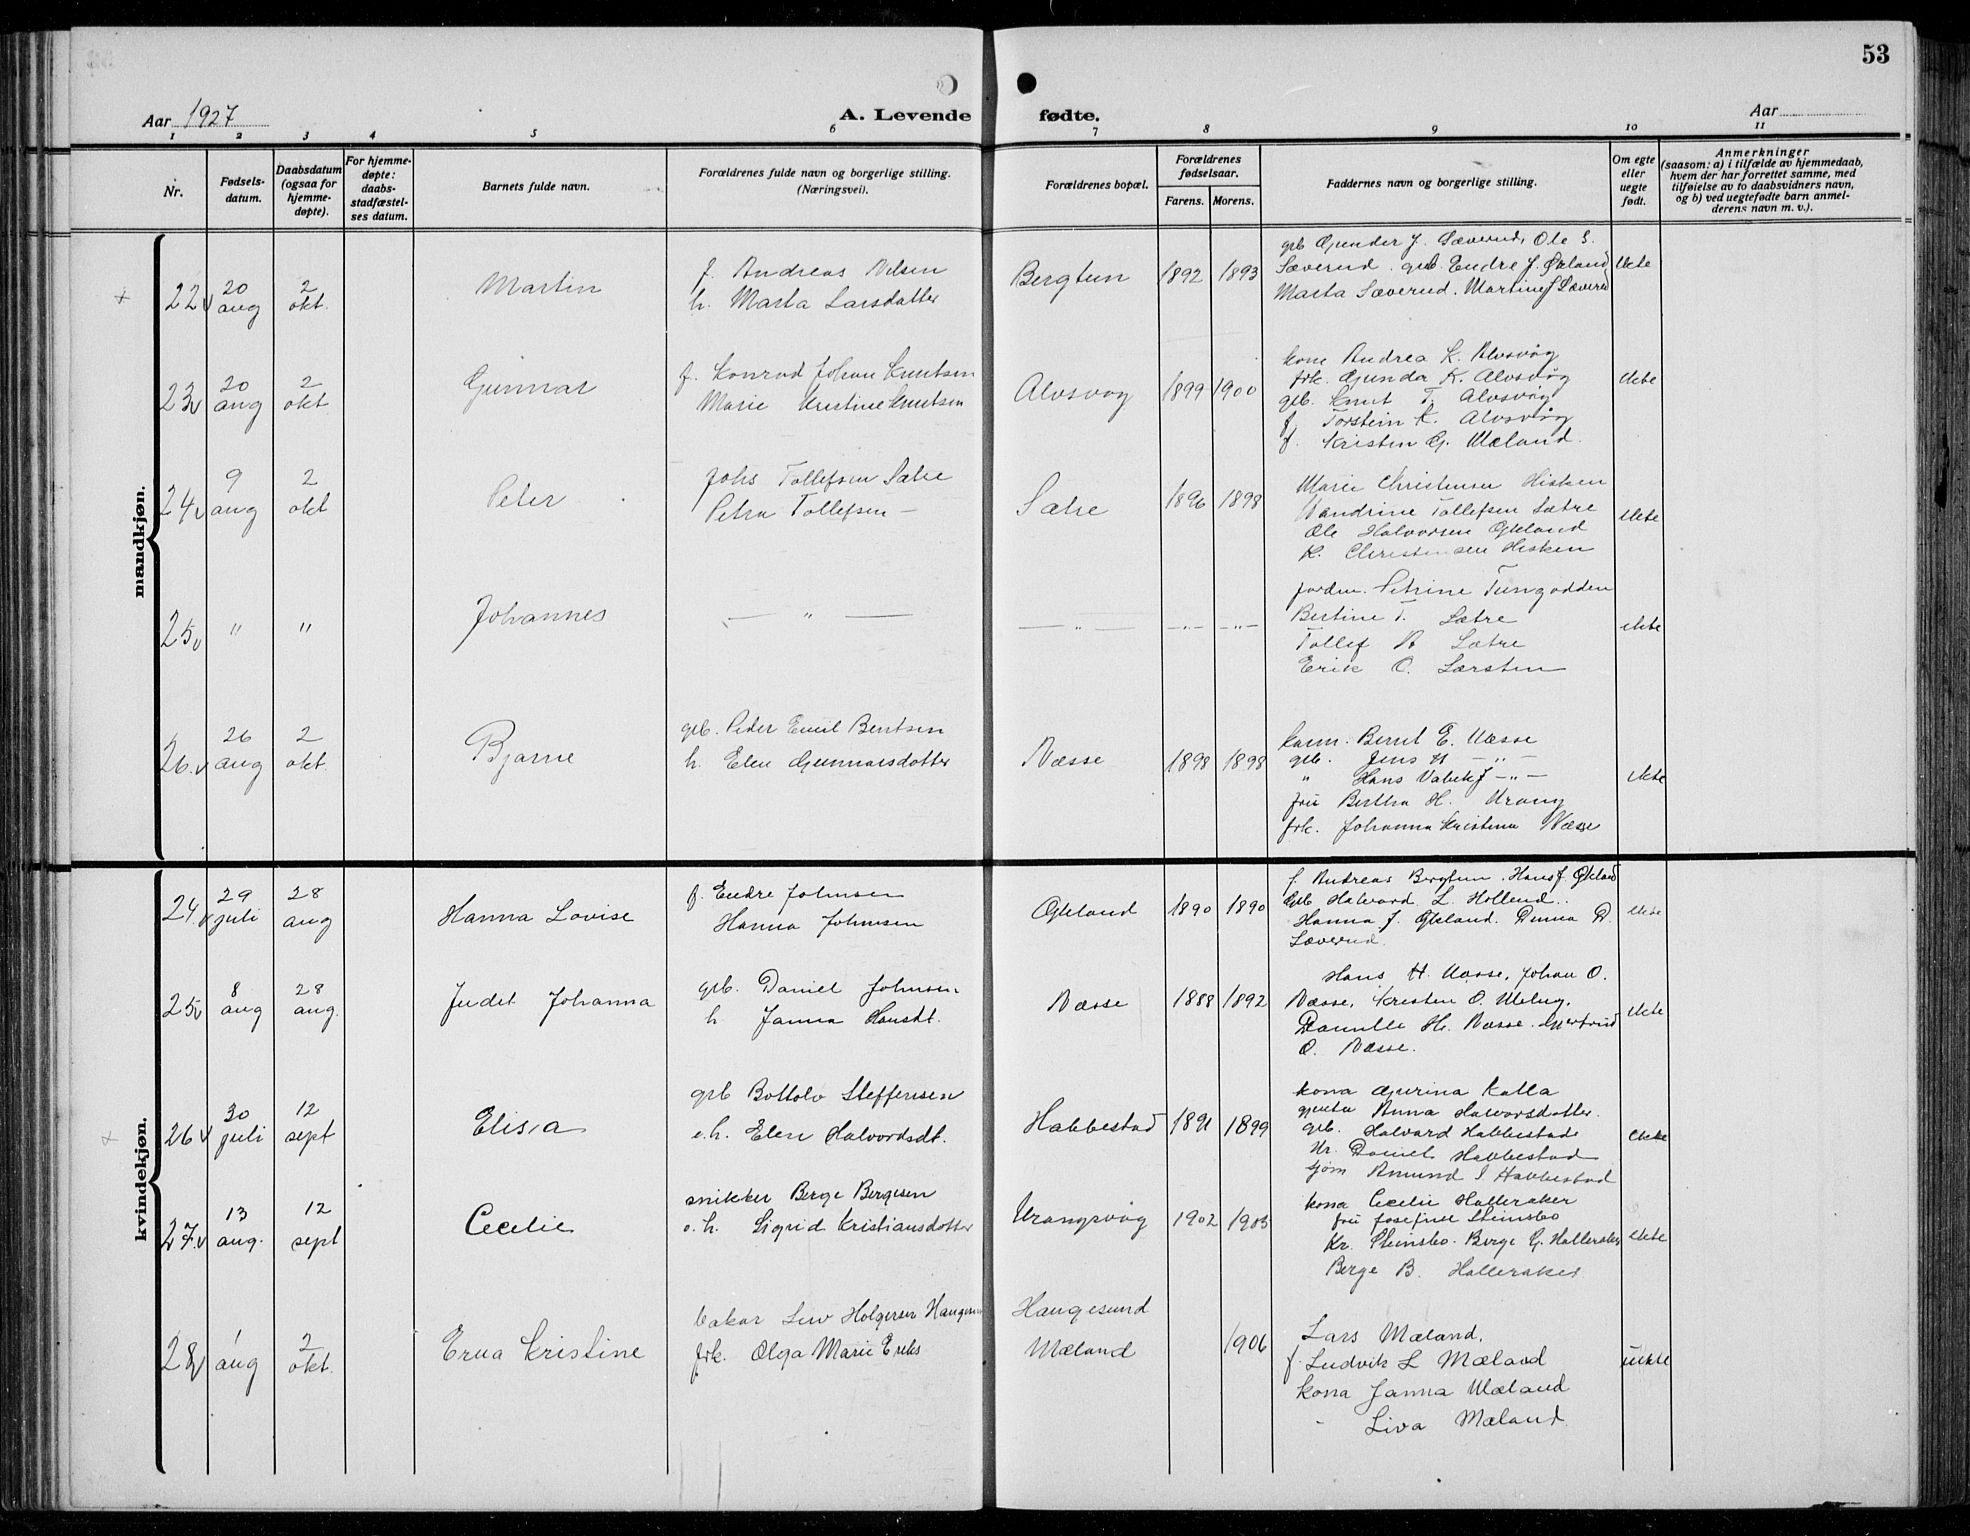 53
Aar 1927
A. Levende fødte.
Aar
1 2 3 4 5 6 7 8 9 10 11
Nr.
Fødsels-
datum.
Daabsdatum
(ogsaa for
hjemme-
døpte).
For hjemme-
døpte:
daabs-
stadfæstel-
ses datum.
Barnets fulde navn.
Forældrenes fulde navn og borgerlige stilling.
(Næringsvei).
Forældrenes bopæl.
Forældrenes
fødselsaar.
Farens. Morens.
Faddernes navn og borgerlige stilling.
Om egte
eller
uegte
født.
Anmerkninger
(saasom: a) i tilfælde av hjemmedaab,
hvem der har forrettet samme, med
tilføielse av to daabsvidners navn,
og b) ved uegtefødte barn anmel-
derens navn m. v.).
mandkjøn.
22 20 aug 2 okt. Martin
f. Andreas Nilsen
h. Marta Larsdatter
Bergtun 1892 1893
grb Gunder J. Sæverud, Ole S.
Sæverud. grb. Endre J. Økland
Marta Sæverud. Martine J Sæverud
ekte
23 20 aug 2 okt Gunnar
f. Konrad Johan Knutsen
Marie Kristine Knutsen
Alvsvåg 1899 1900
kone Andrea K. Alvsvåg
frk. Gunda K. Alvsvåg
grb. Knut T. Alvsvåg
f. Torstein K. Alvsvåg
f. Kristen G. Mæland.
ekte
24 9 aug 2 okt Peter
Johs Tollefsen Sætre
Petra Tollefsen –
Sætre 1896 1898
Marie Christensen Hisken
Wandrine Tollefsen Sætre
Ole Halvorsen Økland
K. Christensen Hisken
ekte
25 " " Johannes
— " —
— " — —"— —"—
jordm. Petrine Tungodden
Bertine T. Sætre
Tollef A Sætre
Erik O. Sørsten
ekte
26. 26 aug 2 okt. Bjarne
grb. Peder Emil Bentsen
h. Elen Gunnarsdotter
Næsse 1898 1898
kaem. Bernt E. Næsse
grb. Jens H —"—
" Hans Valentf —"—
fru Bertha H. Urang
frk. Johanna Kristina Næsse
ekte
kvindekjøn.
24 29 juli 28 aug Hanna Lovise
f. Endre Johnsen
Hanna Johnsen
Økland 1890 1890
f. Andreas Bergtun. Hans J. Økland
Grb Halvard L. Holland..
Hanna J. Økland. Dinna D.
Sæverud.
ekte
25 8 aug 28 aug. Judit Johanna
grb. Daniel Johnsen
h Janna Hansdt.
Næsse 1888 1892
Hans H. Næsse, Johan O.
Næsse, Kristen O. Meling,
Danielle H. Næsse. Gjertrud
O. Næsse.
ekte
26 30 juli 12 sept Elisa
grb Bottolv Steffensen
e.h. Elen Halvordsdt.
Habbestad 1891 1899
kona Gurina Kalla
gjenta Anna Halvorsdotter.
grb. Halvard Habbestad
Ur. Daniel Habbestad
sjøm Amund S Habbestad
ekte
27. 13 aug. 12 sept Cecelie
snikker Berge Bergesen
e.h. Sigrid Kristiansdotter
Urangsvåg 1902 1903
kona Cecelie Halleraker
fru Josefine Steinsbo
Kr. Steinsbo. Berge G. Halleraker
Berge B. Halleraker
ekte
28 1 aug 2 okt. Erna Kristine
bakar Holgersen Haugesund
frk. Olga Marie Eriks
Haugesund
Mæland 1906
Lars Mæland,
f. Ludvik L Mæland
kona Janna Mæland
– Liva Mæland
uekte